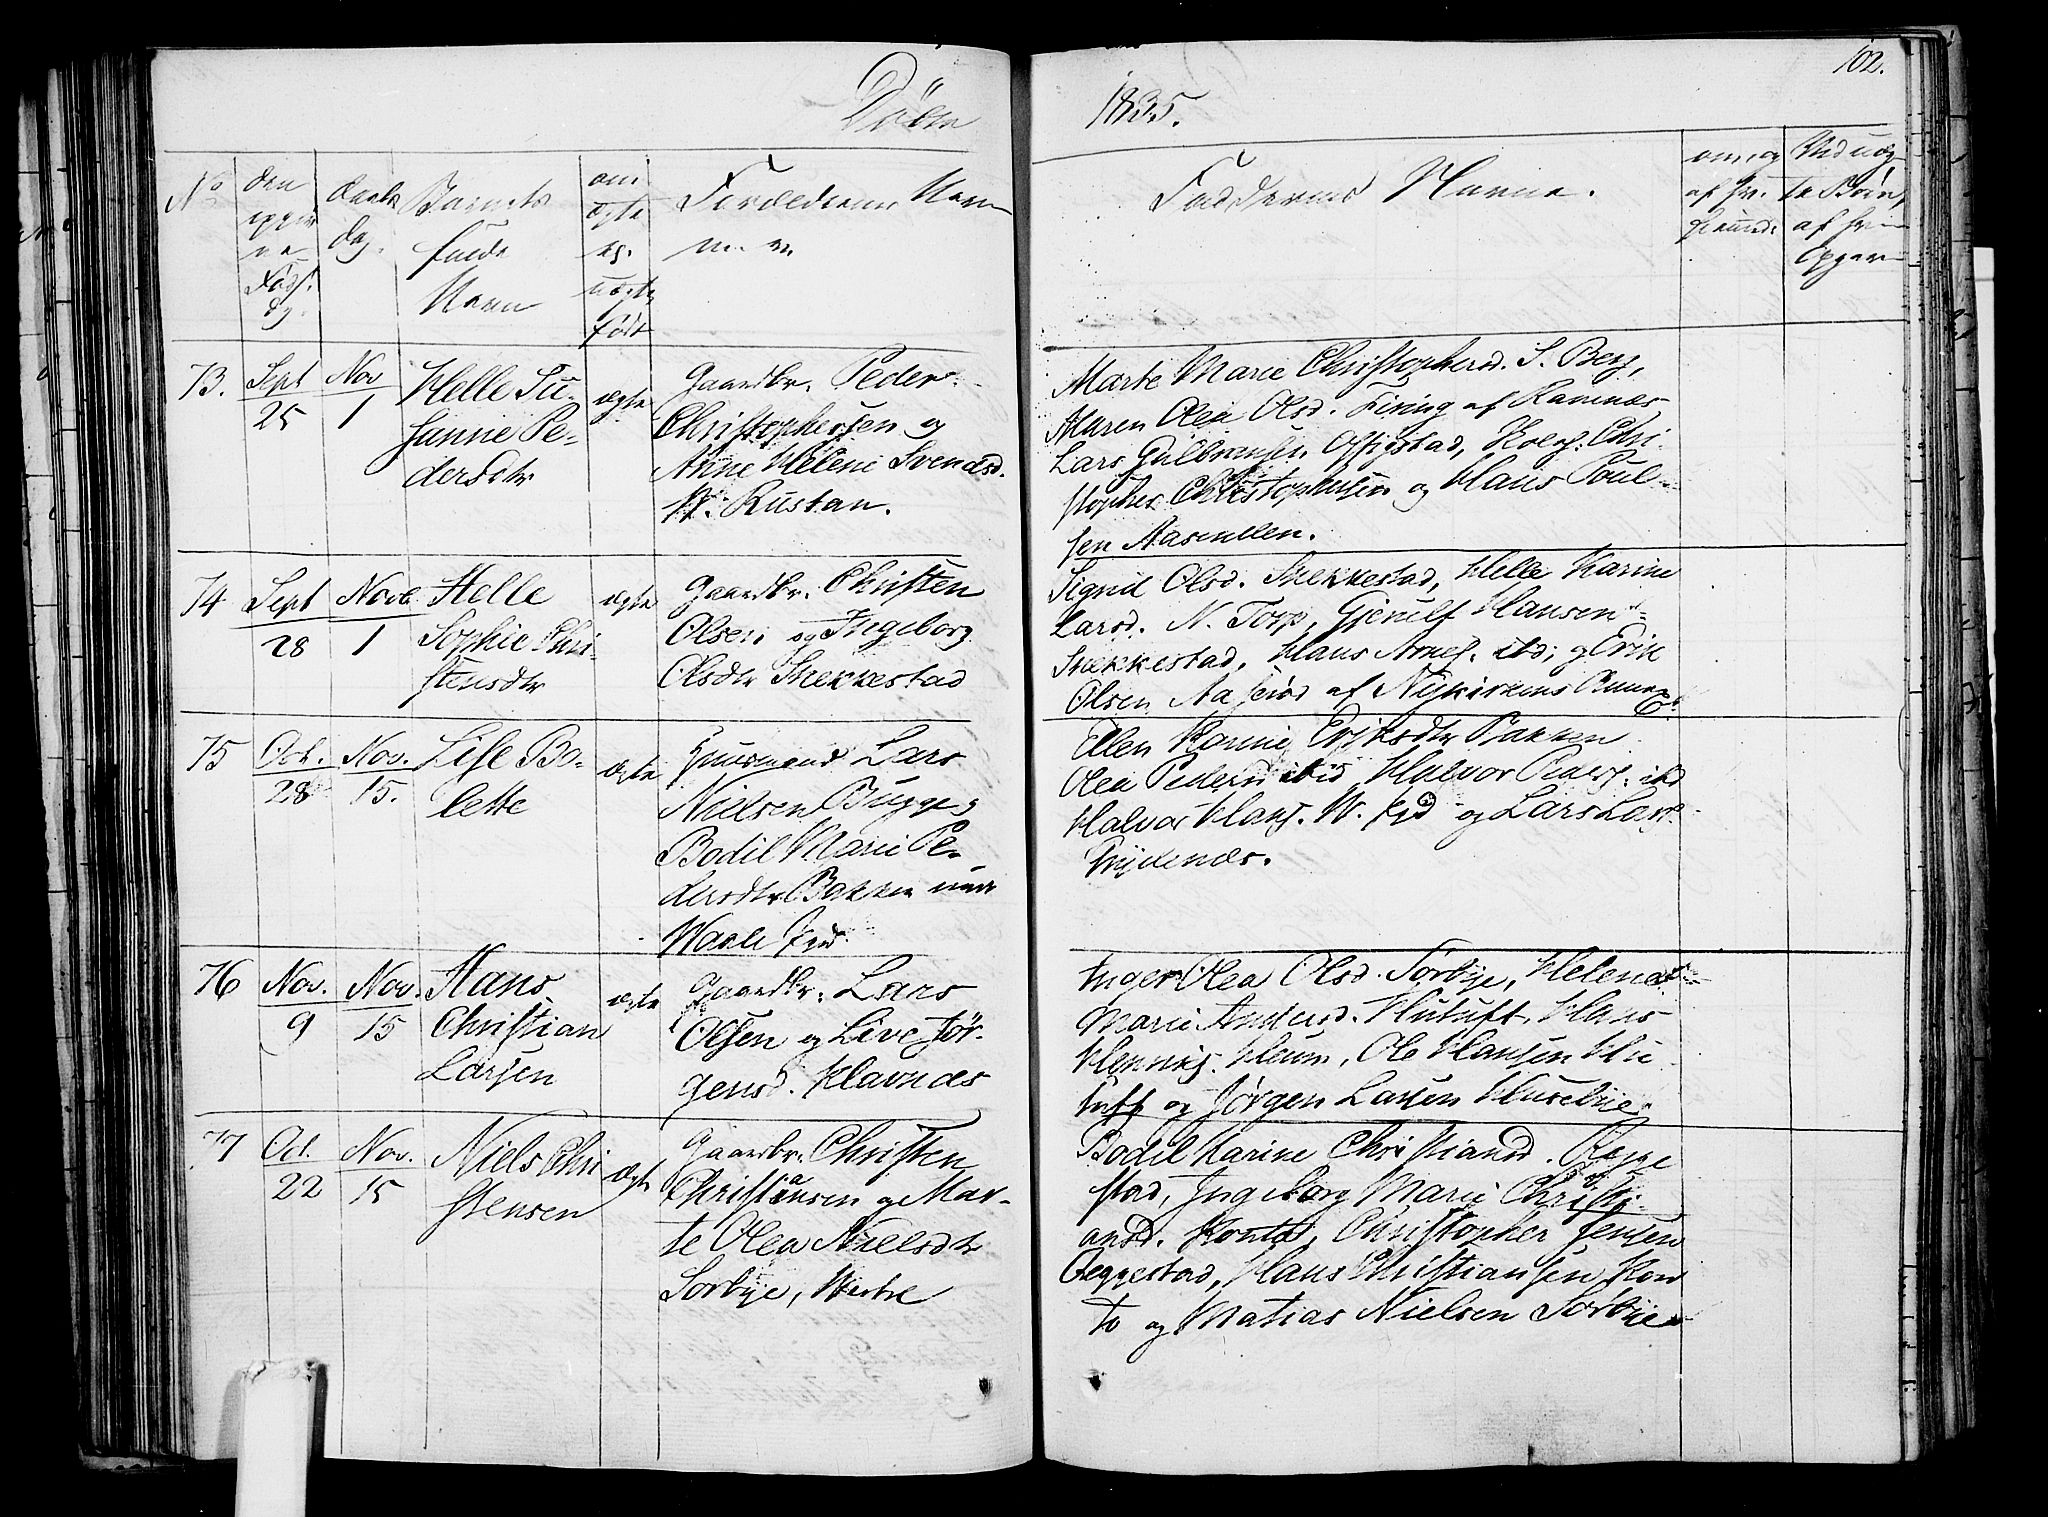 102.
Døbte
1835.
No
den
opgiv
ne
Føds.
dg.
Daabs
dag.
Barnets
fulde
Navn
om
ægte
eg.
uægte
født
Forældrenes Navn
m. m.
Faddernes Navne.
af
Ved uæg
te Børn,
af
73.
Sept
25
Nov
1
Helle Su-
sanne Pe-
dersdtr
ægte
Gaardbr. Peder
Christophersen og
Anne Helene Svendsd.
N. Rustan.
Marte Marie Christophersd. S. Berg,
Maren Olea Olsd. Firing af Ramnæs
Lars Gulbransen Chri-
stopher Christophersen og Hans Poul-
sen Aasmullen.
74
Sept
28
Nove
1
Helle
Sophie Chri-
stensdtr
ægte
Gaardbr. Christen
Olsen og Ingeborg
Olsdtr Snekkestad
Sigrid Olsd. Snekkestad, Helle Karine
Larsd. N. Torp, Gjerulf Hansen
Snekkestad, Hans Arnes. ibd; og Erik
Olsen af Nykirkens Annex
75
Oct.
28
Nov.
15.
Lise Bo-
lette
ægte
Huusmand Lars
Nielsen Bugge og
Bodil Marie Pe-
dersdtr Bakken
Ellen Karine Eriksdtr Bakken
Olea Pedersd ibid Halvor Peders. ibd
Halvor Hans. og Lars Lars.
Trydenæs.
76
Nov.
9
Nov.
15
Hans
Christian
Larsen
ægte
Gaardbr. Lars
Olsen og Live Jør-
gensd. Klavnæs
Inger Olea Olsd. Sørbye, Helene
Marie Andersd. Hutuft, Hans
Hennings. Heum, Ole Hansen Hu
tuft og Jørgen Larsen Huseby
77
Oct.
22
Nov.
15
Niels Chri
stensen
ægte
Gaardbr. Christen
Christiansen og Mar-
te Olea Nielsdtr
Sørbye, Westre
Bodil Karine Christiansd. Regge
stad, Ingeborg Marie Christi-
ansd. Konto, Christopher Jensen
Reggestad, Hans Christiansen Kon
to og Matias Nielsen Sørbye